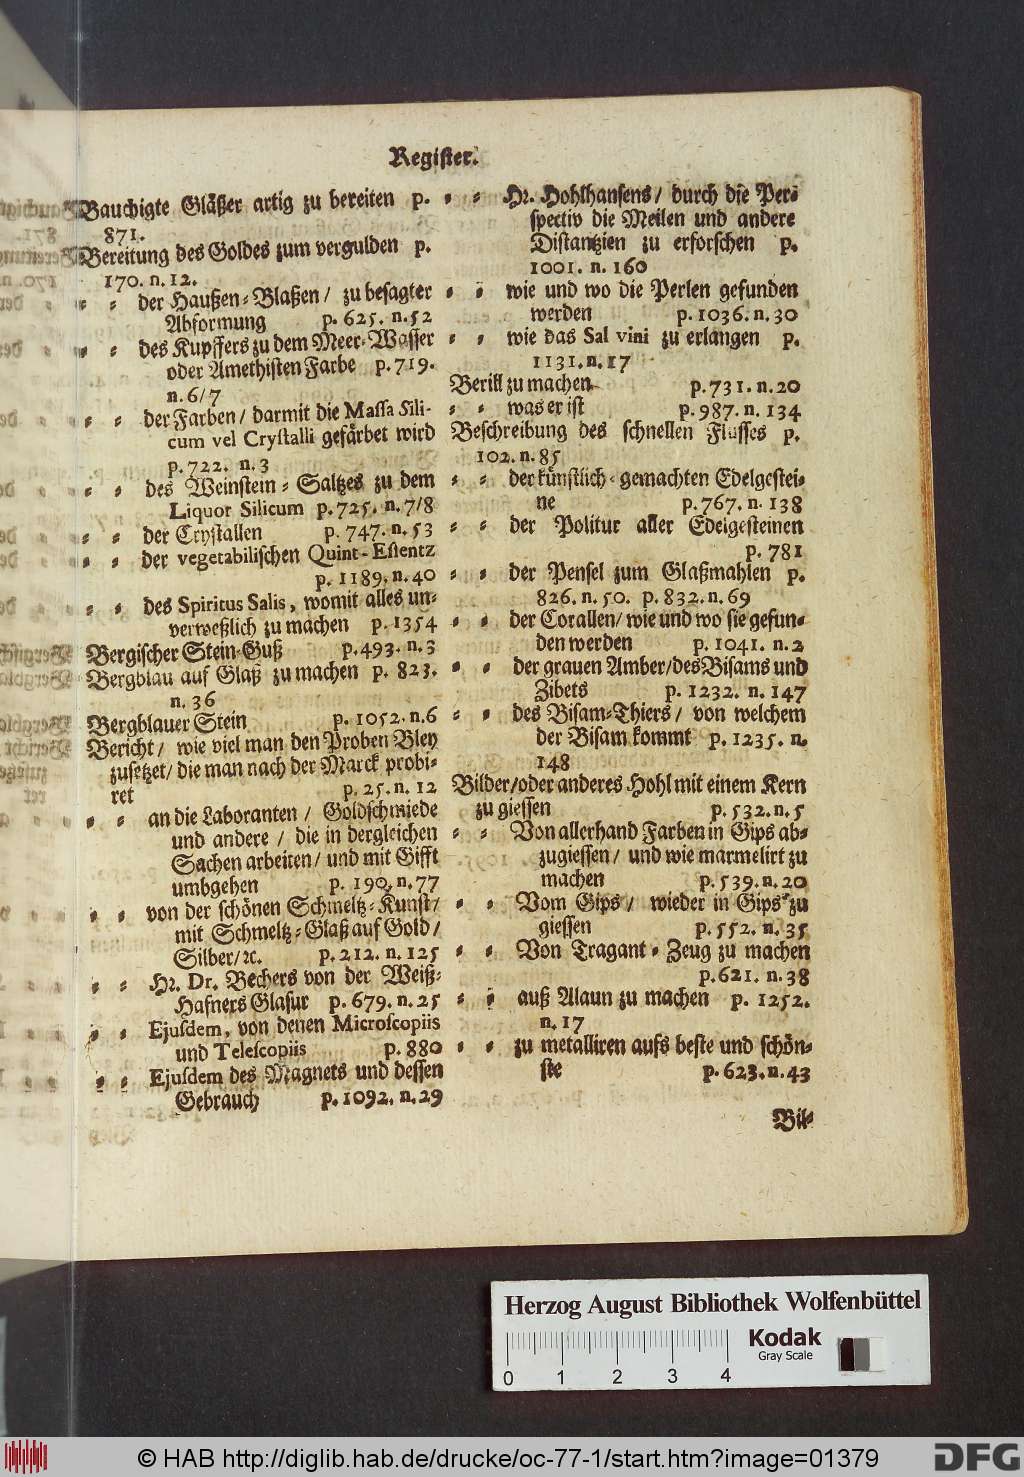 Register.
Bauchigte Gläßer artig zu bereiten p.
871.
Bereitung des Goldes zum vergulden p.
170. n. 12.
⸗ ⸗ der Haußen⸗Blaßen / zu besagter
Abformung p. 625. n. 52
⸗ ⸗ des Kupffers zu dem Meer⸗Wasser
oder Amethisten Farbe p. 719.
n. 6/7
⸗ ⸗ der Farben / darmit die Massa Sili-
cum vel Crystalli gefärbet wird
p. 722. n. 3
⸗ ⸗ des Weinstein⸗Saltzes zu dem
Liquor Silicum p. 725. n. 7/8
⸗ ⸗ der Crystallen p. 747. n. 53
⸗ ⸗ der vegetabilischen Quint-Essentz
p. 1189. n. 40
⸗ ⸗ des Spiritus Salis, womit alles un⸗
verweßlich zu machen p. 1354
Bergischer Stein⸗Guß p. 493. n. 3
Bergblau auf Glaß zu machen p. 823.
n. 36
Bergblauer Stein p. 1052. n. 6
Bericht / wie viel man den Proben Bley
zusetzet / die man nach der Marck probi⸗
ret p. 25. n. 12
⸗ ⸗ an die Laboranten / Goldschmiede
und andere / die in dergleichen
Sachen arbeiten / und mit Gifft
umbgehen p. 190. n. 77
⸗ ⸗ von der schönen Schmeltz⸗Kunst /
mit Schmeltz⸗Glaß auf Gold /
Silber / ꝛc. p. 212. n. 125
⸗ ⸗ Hr. Dr. Bechers von der Weiß⸗
Hafners Glasur p. 679. n. 25
⸗ ⸗ Ejusdem, von denen Microscopiis
und Telescopiis p. 880
⸗ ⸗ Ejusdem des Magnets und dessen
Gebrauch p. 1092. n. 29
⸗ ⸗ Hr. Hohlhansens / durch die Per⸗
spectiv die Meilen und andere
Distantzien zu erforschen p.
1001. n. 160
⸗ ⸗ wie und wo die Perlen gefunden
werden p. 1036. n. 30
⸗ ⸗ wie das Sal vini zu erlangen p.
1131. n. 17
Berill zu machen p. 731. n. 20
⸗ ⸗ was er ist p. 987. n. 134
Beschreibung des schnellen Flusses p.
102. n. 85
⸗ ⸗ der künstlich⸗gemachten Edelgestei⸗
ne p. 767. n. 138
⸗ ⸗ der Politur aller Edelgesteinen
p. 781
⸗ ⸗ der Pensel zum Glaßmahlen p.
826. n. 50. p. 832. n. 69
⸗ ⸗ der Corallen / wie und wo sie gefun⸗
den werden p. 1041. n. 2
⸗ ⸗ der grauen Amber / des Bisams und
Zibets p. 1232. n. 147
⸗ ⸗ des Bisam⸗Thiers / von welchem
der Bisam kommt p. 1235. n.
148
Bilder / oder anderes Hohl mit einem Kern
zu giessen p. 532. n. 5
⸗ ⸗ Von allerhand Farben in Gips ab⸗
zugiessen / und wie marmelirt zu
machen p. 539. n. 20
⸗ ⸗ Vom Gips / wieder in Gips zu
giessen p. 552. n. 35
⸗ ⸗ Von Tragant⸗Zeug zu machen
p. 621. n. 38
⸗ ⸗ auß Alaun zu machen p. 1252.
n. 17
⸗ ⸗ zu metalliren aufs beste und schön⸗
ste p. 623. n. 43
Bil⸗
Herzog August Bibliothek Wolfenbüttel
Kodak
Gray Scale
0 1 2 3 4
© HAB http://diglib.hab.de/drucke/oc-77-1/start.htm?image=01379
DFG